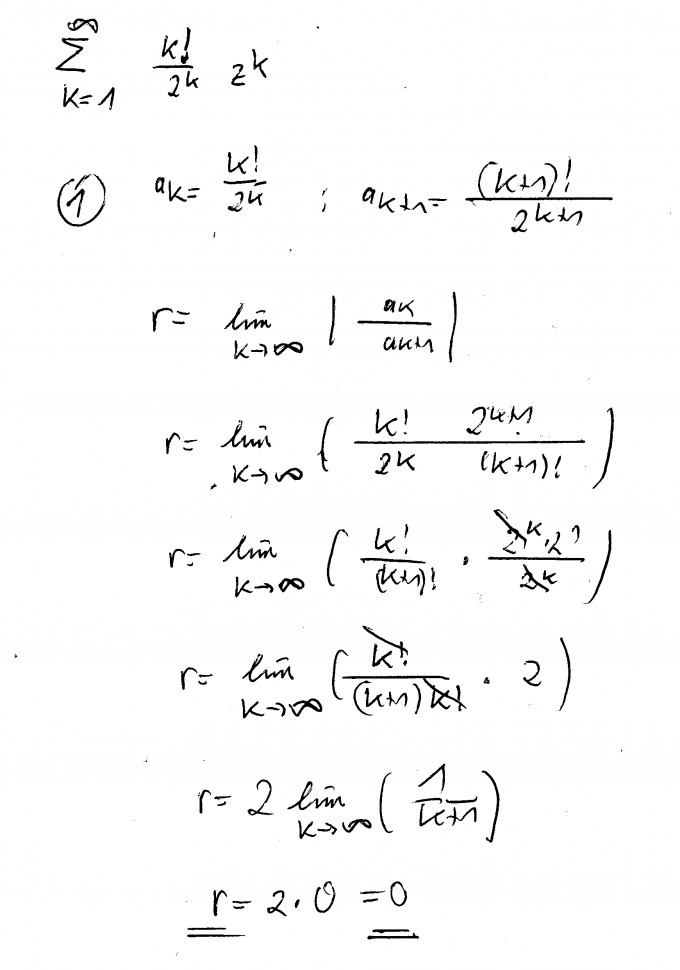 ∞
∑ k!/2^k z^k
k=1
① a_k = k!/2^k ; a_k+1 = (k+1)!/2^k+1
r = lim k→∞ | a_k/a_k+1 |
r = lim k→∞ ( k!/2^k 2^k+1/(k+1)! )
r = lim k→∞ ( k!/(k+1)! · 2^k·2^1/2^k )
r = lim k→∞ ( k!/(k+1)k! · 2 )
r = 2 lim k→∞ ( 1/k+1 )
r = 2 · 0 = 0